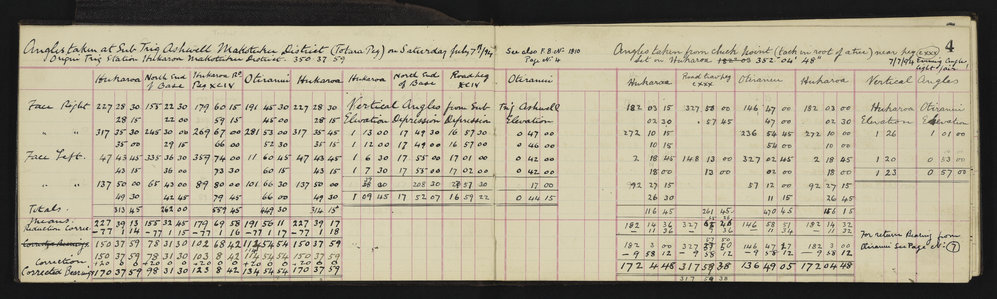 Angles taken at Sub Trig Ashwell Makotuku District (Totara Peg) on Saturday July 7th/94
Origin Trig Station Hukaroa Makotuku District. 350 37 59
Hukaroa North End of Base Hukaroa Rd Peg XCIV Otiranui Hukaroa Hukaroa North End of Base Road peg XCIV Otiranui
Face Right 227 28 30 155 22 30 179 60 15 191 45 30 227 28 30 Vertical Angles from Sub Trig Ashwell
28 15 22 00 59 15 45 00 28 15 Elevation Depression Depression Elevation
" " 317 35 30 245 30 00 269 67 00 281 53 00 317 35 45 1 13 00 17 49 30 16 57 30 0 47 00
35 00 29 15 66 00 52 30 35 15 1 12 00 17 49 00 16 57 00 0 46 00
Face Left. 47 43 45 335 36 30 359 74 00 11 60 45 47 43 45 1 6 30 17 55 00 17 01 00 0 42 00
43 15 36 00 73 30 60 15 43 15 1 7 30 17 55 00 17 02 00 0 42 00
" " 137 50 00 65 43 00 89 80 00 101 66 30 137 50 00 38 30 208 30 57 30 17 00
49 30 42 45 79 45 66 00 49 30 1 09 45 17 52 07 16 59 22 0 44 15
Totals. 313 45 262 00 559 45 449 30 314 15
Means. 227 39 13 155 32 45 179 69 58 191 56 11 227 39 17
Reduction Corrn - 77 1 14 - 77 1 15 - 77 1 16 - 77 1 17 - 77 1 18
150 37 59 78 31 30 102 68 42 114 54 54 150 37 59
150 37 59 78 31 30 103 8 42 114 54 54 150 37 59
Correction +20 0 0 +20 0 0 +20 0 0 +20 0 0 +20 0 0
Corrected Bearings 170 37 59 98 31 30 123 8 42 134 54 54 170 37 59
See also F.B No. 1810
Page No. 4
4
Angles taken from check point (tack in root of a tree) near peg CXXX
set on Hukaroa 352° 04' 48"
7/7/94 Evening
Hukaroa Road trav peg CXXX Otiranui Hukaroa Vertical Angles
182 03 15 327 58 00 146 47 00 182 03 00 Hukaroa Otiranui
02 30 57 45 47 00 02 30 Elevation Elevation
272 10 15 236 54 45 272 10 00 1 26 1 01 00
10 15 54 00 10 00
2 18 45 148 13 00 327 02 45 2 18 45 1 20 0 53 00
18 00 13 00 02 00 18 00 1 23 0 57 00
92 27 15 57 12 00 92 27 15
26 30 11 15 26 45
116 45 261 45 470 45 156 15
182 14 36 146 58 51 182 14 32
For return Bearing from
Otiranui See Page No. 7
182 3 00 146 47 182 3 00
- 9 58 12 - 9 58 12 - 9 58 12 - 9 58 12
172 4 48 317 59 38 136 49 05 172 04 48
317 59 38